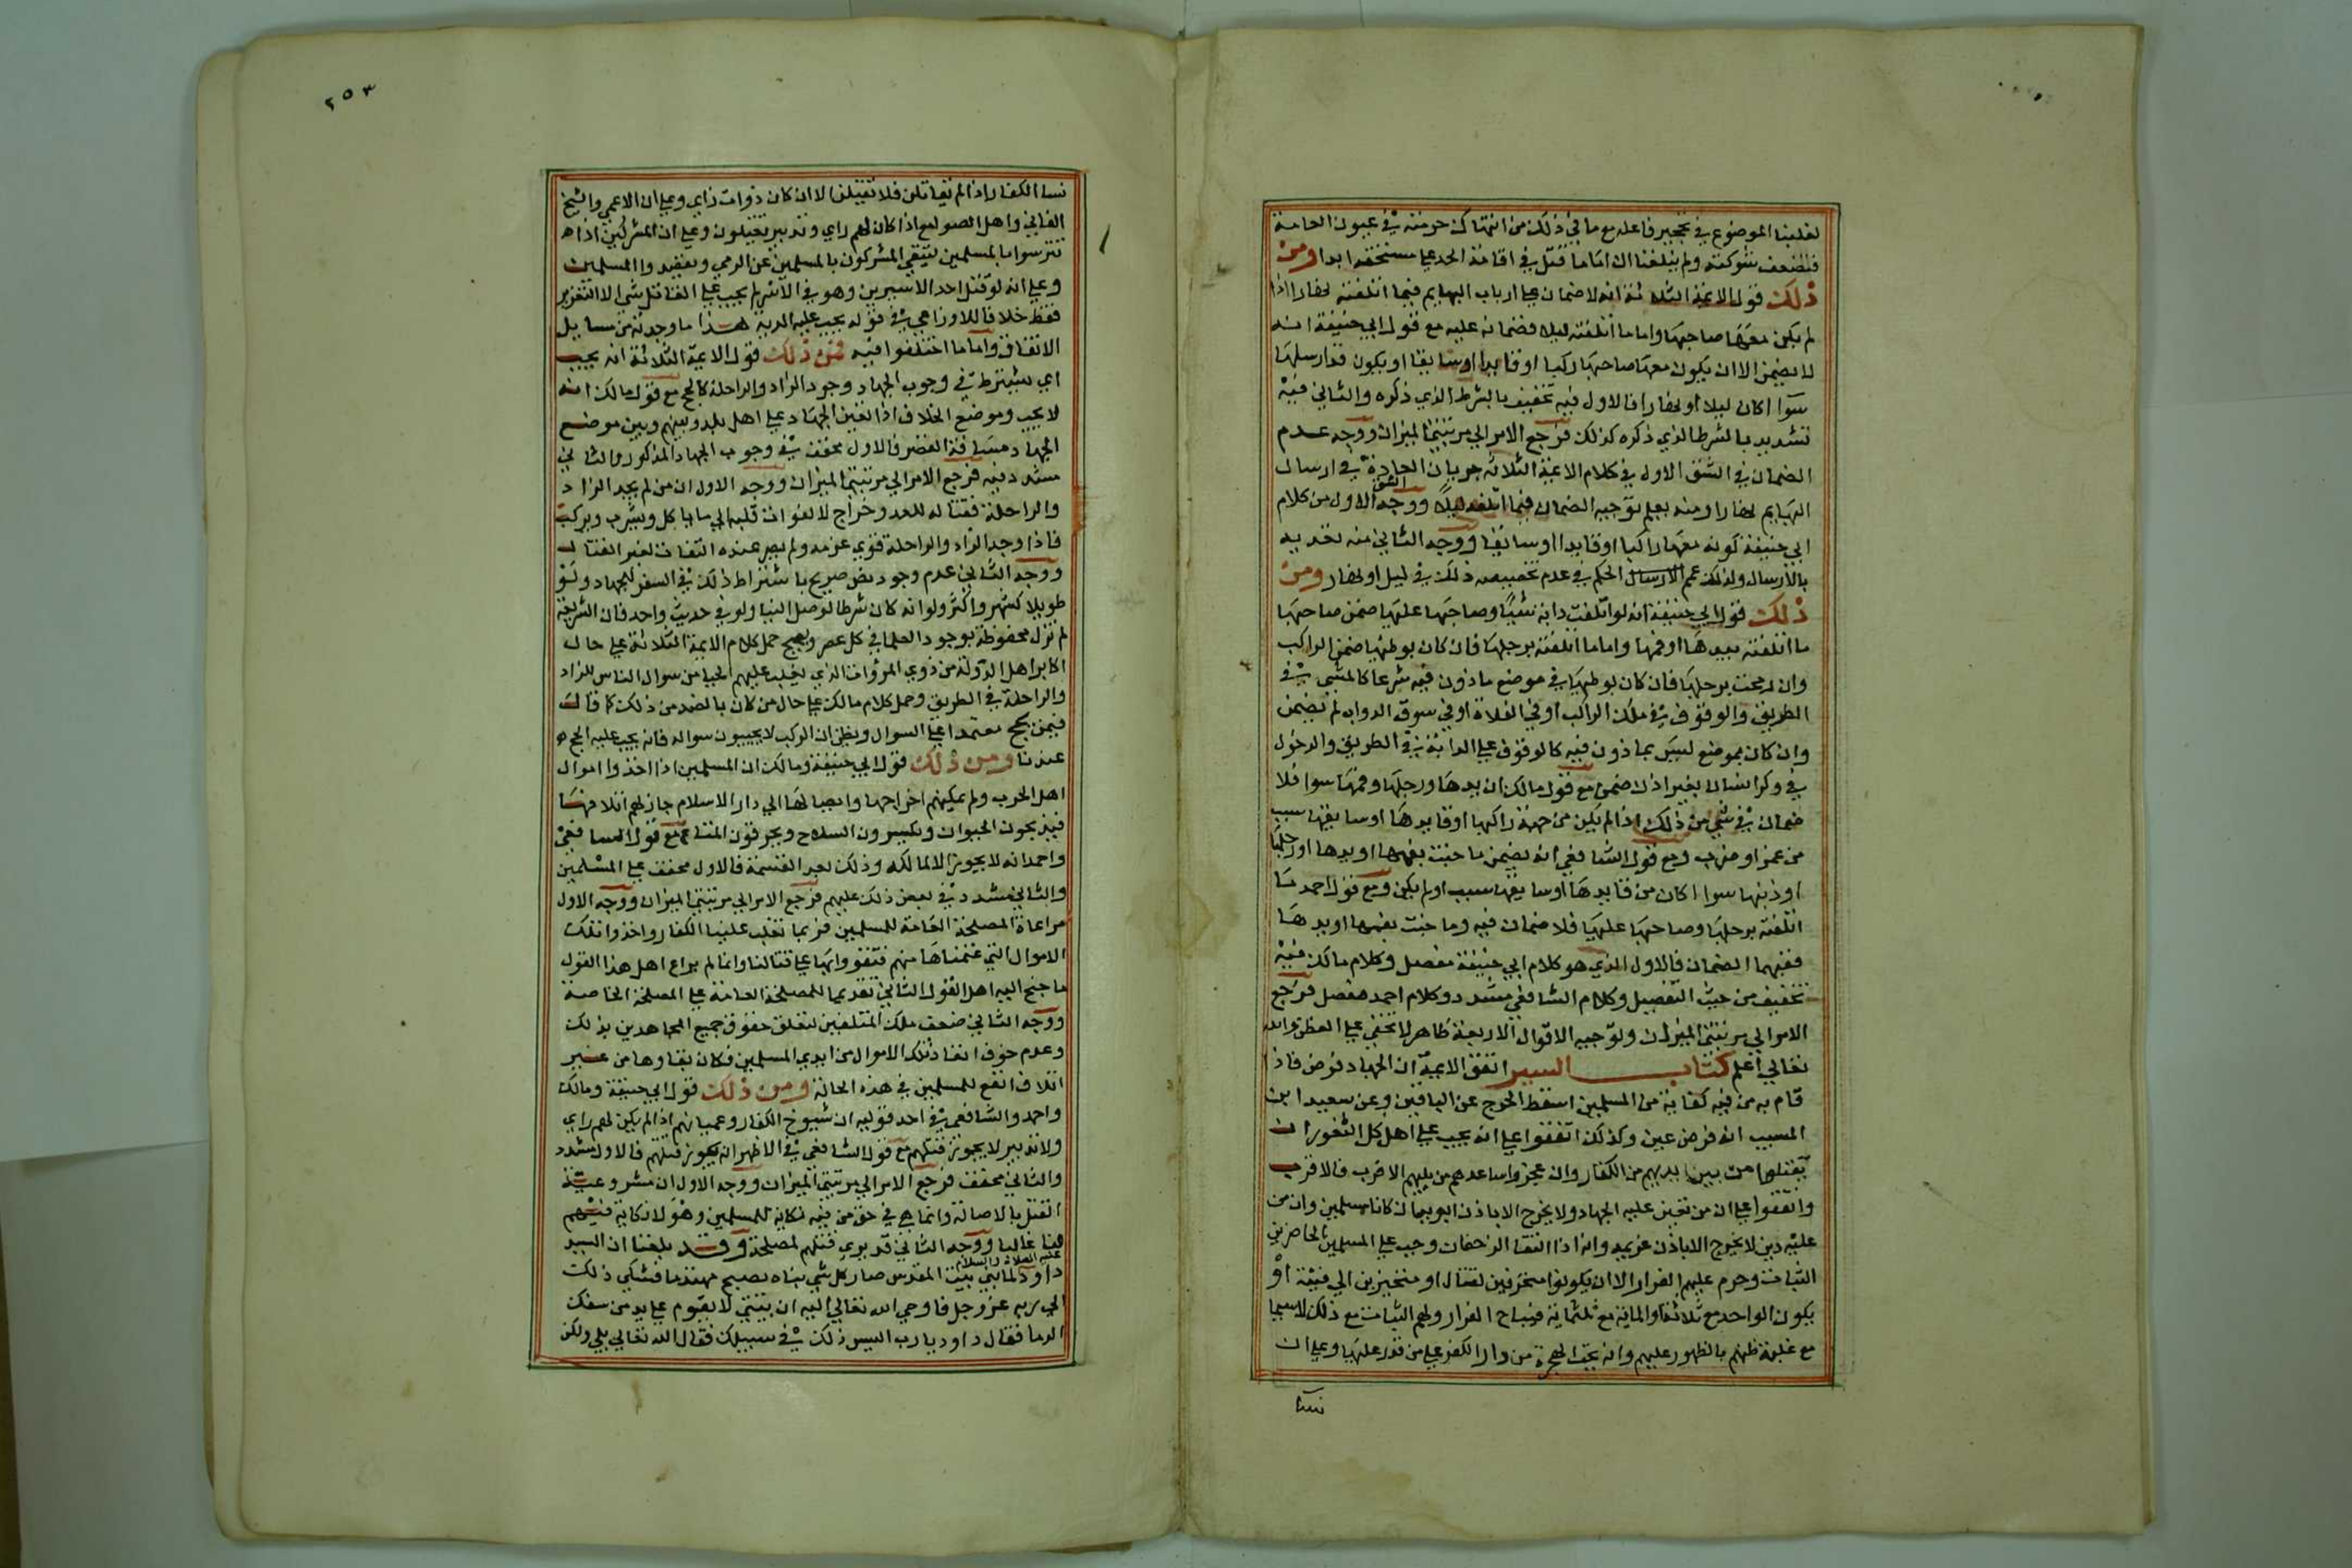 لغلبنا الموضوع في تحجير فاعله مع ما في ذلك من انتهاك حرمته في عيون العامة
فتضعف شوكته ولم يبلغنا ان اماما قتل في اقامة الحد على مستحقه ابدا ومن
ذلك قول الائمة الثلاثة انه لا ضمان على ارباب البهايم فيما اتلفته نهارا اذا
لم يكن معها صاحبها واما ما اتلفته ليلا فضمانه عليه مع قول ابي حنيفة انه
لا يضمن الا ان يكون معها صاحبها راكبا او قايدا او سايقا او يكون قد ارسلها
سوا اكان ليلا او نهارا فالاول فيه تخفيف بالشرط الذي ذكره والثاني فيه
تشديد بالشرط الذي ذكره كذلك فرجع الامر الي مرتبتي الميزان ووجه عدم
الضمان في الشق الاول في كلام الائمة الثلاثة جريان العادة في ارسال
البهايم نهارا ومنه يعلم توجيه الضمان فيما اتلفته ليلا ووجه الشق الاول من كلام
ابي حنيفة كونه معها راكبا او قايدا او سايقا ووجه الثاني منه تعديه
بالارسال ولذلك عمم الارسال الحكم في عدم تخصيصه ذلك في ليل او نهار ومن
ذلك قول ابي حنيفة انه لو اتلفت دابة شيا وصاحبها عليها ضمن صاحبها
ما اتلفته بيدها او فمها واما ما اتلفته برجلها فان كان بوطئها ضمن الراكب
وان رمحت برجلها فان كان بوطئها في موضع ماذون فيه شرعا كالمشي في
الطريق والوقوف في ملك الراكب او في الفلاة او في سوق الدواب لم يضمن
وان كان بموضع ليس بماذون فيه كالوقوف على الدابة في الطريق والدخول
في دار انسان بغير اذن ضمن مع قول مالك ان يدها ورجلها وفمها سوا فلا
ضمان في شي من ذلك اذا لم يكن من جهة راكبها او قايدها او سايقها سبب
من غمز او ضرب ومع قول الشافعي انه يضمن ما جنت بفمها او يدها او رجلها
او ذنبها سوا اكان من قايدها او سايقها سبب او لم يكن ومع قول احمد ما
اتلفته برجلها وصاحبها عليها فلا ضمان فيه وما جنت بفمها او يدها
ففيهما الضمان فالاول الذي هو كلام ابي حنيفة مفصل وكلام مالك فيه
تخفيف من حيث التفصيل وكلام الشافعي مشدد وكلام احمد مفصل فرجع
الامر الي مرتبتي الميزان وتوجيه الاقوال الاربعة ظاهر لا يخفي على الفطن والله
تعالي اعلم كتاب السير اتفق الايمة ان الجهاد فرض فاذا
قام به من فيه كفاية من المسلمين اسقط الحرج عن الباقين وعن سعيد ابن
المسيب انه فرض عين وكذلك اتفقوا على انه يجب على اهل كل الثغور ان
يقتلوا من بين ايديهم من الكفار وان عجزوا ساعدهم من يليهم الاقرب فالاقرب
واتفقوا على ان من تعين عليه الجهاد ولا يخرج الا باذن ابويه ان كانا مسلمين وان من
عليه دين لا يخرج الا باذن غريمه وانه اذا التقا الزحفان وجب على المسلمين الحاضرين
الثبات وحرم عليهم الفرار الا ان يكونوا متحرفين لقتال او متحيزين الي فئة او
يكون الواحد مع ثلاثة او الماية مع ثلثماية فيباح الفرار ولهم الثبات مع ذلك لا سيما
مع غلبة ظنهم بالظهور عليهم وانه يجب الهجرة من دار الكفر على من قدر عليها وعلى ان
نسا
٢٥٣
نسا الكفار اذا لم يقاتلن فلا تقتلن الا ان كان ذوات راي وعلى ان الاعمي والشيخ
الفاني واهل الصوامع اذا كان لهم راي وتدبير يقتلون وعلى ان المشركين اذا
تترسوا بالمسلمين ليتقي المشركون بالمسلمين عن الرمي ويقصدوا المسلمين
وعلى انه لو قتل احد الاسيرين وهو في الاسر لم يجب على القاتل شي الا التعزير
فقط خلافا للاوزاعي في قوله يجب عليه الدية هذا ما وجدته من مسايل
الاتفاق واما ما اختلفوا فيه فمن ذلك قول الايمة الثلاثة انه يجب
اي يشترط في وجوب الجهاد وجود الزاد والراحلة كالحج مع قول مالك انه
لا يجب وموضع الخلاف اذا تعين الجهاد على اهل بلد وبينهم وبين موضع
الجهاد مسافة القصر فالاول مخفف في وجوب الجهاد المذكور والثاني
مشدد فيه فرجع الامر الي مرتبتي الميزان ووجه الاول ان من لم يجد الزاد
والراحلة فقتاله للعدو خراج لالتفات قلبه الي ما ياكل ويشرب ويركب
فاذا وجد الزاد والراحلة قوي عزمه ولم يصر عنده التفات لغير القتال
ووجه الثاني عدم وجود نص صريح باشتراط ذلك في السفر للجهاد ولو
طويلا كشهر واكثر ولو انه كان شرطا لوصل الينا ولو في حديث واحد فان الشريعة
لم تزل محفوظة بوجود العلما في كل عصر ويصح حمل كلام الايمة الثلاثة على حال
اكابر اهل الدولة من ذوي المروات الذي يغلب عليهم الحيا من سوال الناس للزاد
والراحلة في الطريق وحمل كلام مالك على حال من كان بالضد من ذلك كما قالت
فيمن يحج معتمدا على السوال ويظن ان الركب لا يخيبون سواله فانه يجب عليه الحج
عندنا ومن ذلك قول ابي حنيفة ومالك ان المسلمين اذا اخذوا اموال
اهل الحرب ولم يمكنهم اخراجها وايصالها الي دار الاسلام جاز لهم اتلافها
فيذبحون الحيوان ويكسرون السلاح ويحرقون المتاع مع قول الشافعي
واحمد انه لا يجوز الا لمالكه وذلك بعد القسمة فالاول مخفف على المسلمين
والثاني مشدد في بعض ذلك عليهم فرجع الامر الي مرتبتي الميزان ووجه الاول
مراعاة المصلحة العامة للمسلمين فربما تغلب علينا الكفار واخذوا تلك
الاموال التي غنمناها منهم فتقووا بها على قتالنا وانما لم يراع اهل هذا القول
ما جنح اليه اهل القول الثاني تقديما للمصلحة العامة على المصلحة الخاصة
ووجه الثاني ضعف ملك المتلفين لتعلق حقوق جميع المجاهدين بذلك
وعدم خوف انفاذ تلك الاموال من ايدي المسلمين فكان بقاوها من غير
اتلاف انفع للمسلمين في هذه الحالة ومن ذلك قول ابي حنيفة ومالك
واحمد والشافعي في احد قوليه ان شيوخ الكفار وعميانهم اذا لم يكن لهم راي
ولا تدبير لا يجوز قتلهم مع قول الشافعي في الاظهر انه يجوز قتلهم فالاول مشدد
والثاني مخفف فرجع الامر الي مرتبتي الميزان ووجه الاول ان مشروعية
القتل بالاصالة وانما هي في حق من فيه نكاية للمسلمين وهولا لا نكاية فيهم
لنا غالبا ووجه الثاني قد يري قتلهم لمصلحة وقد بلغنا ان السيد
داود عليه الصلاة والسلام لما بني بيت المقدس صار كل شي بناه يصبح منهدما فشكي ذلك
الي ربه عز وجل فاوحي الله تعالي اليه ان بيتي لا يقوم على يد من سفك
الدما فقال داود يا رب اليس ذلك في سبيلك فقال الله تعالي بلي ولكن